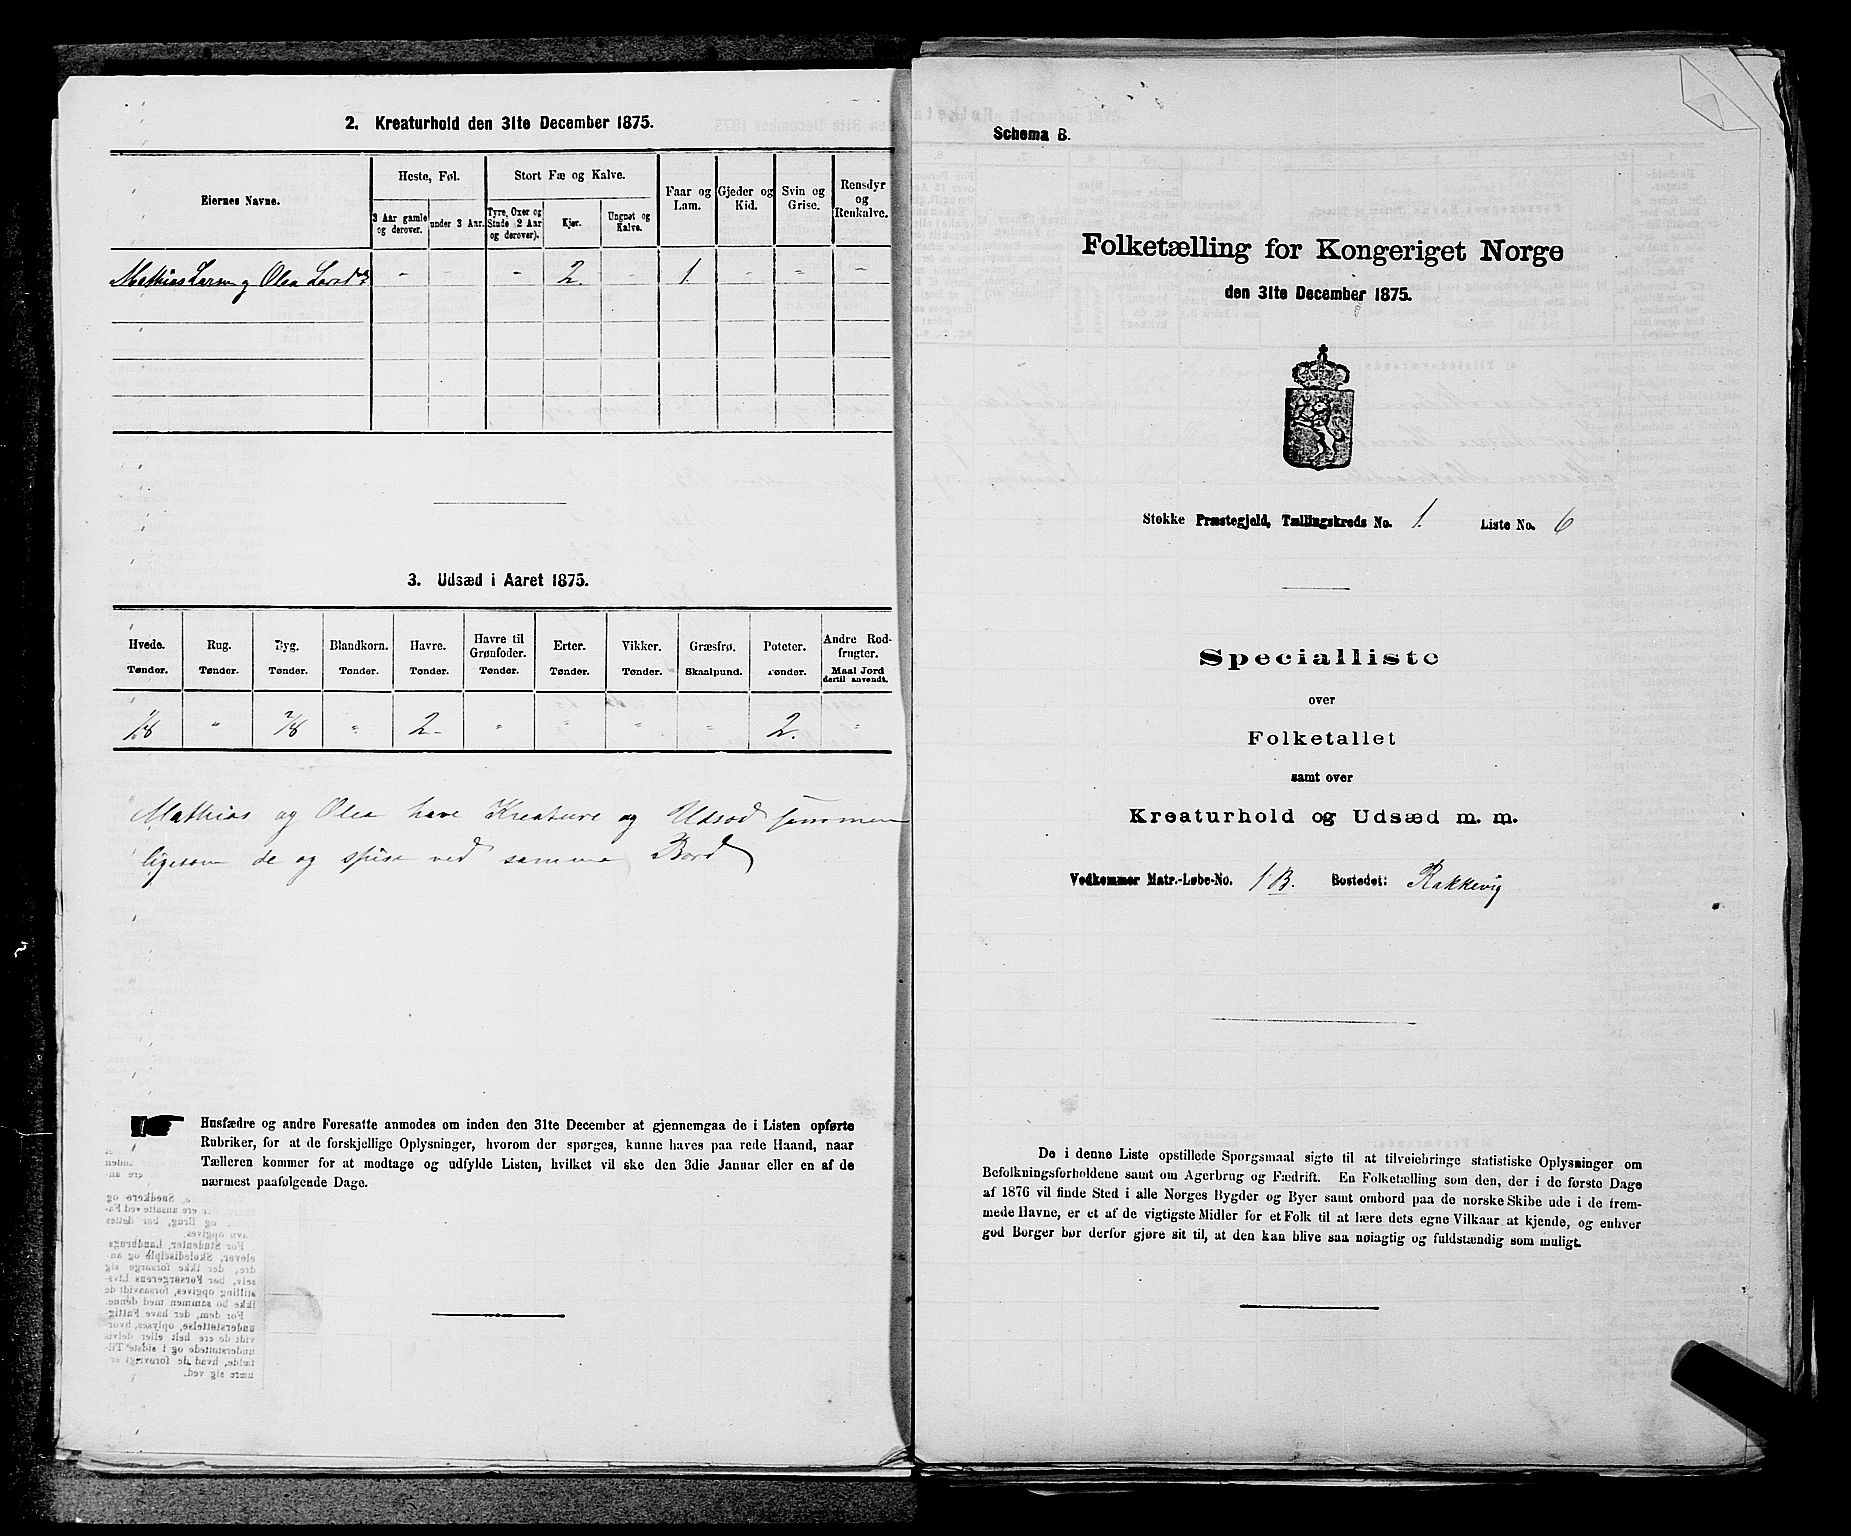 2. Kreaturhold den 31te December 1875.
Eiernes Navne.
Heste, Føl.
Stort Fæ og Kalve.
Faar og Lam.
Gjeder og Kid.
Svin og Grise.
Rensdyr og Renkalve.
3 Aar gamle og derover.
under 3 Aar.
Tyre, Oxer og Stude (2 Aar og derover).
Kjør.
Ungnøt og Kalve.
Mathias Larsen og Olea Larsd - - - 2. - 1. - - -
3. Udsæd i Aaret 1875.
Hvede. Rug. Byg. Blandkorn. Havre. Havre til Grønfoder. Erter. Vikker. Græsfrø. Poteter. Andre Rodfrugter.
Tønder. Tønder. Tønder. Tønder. Tønder. Tønder. Tønder. Tønder. Skaalpund. Tønder. Maal Jord dertil anvendt.
1/8 " 7/8 " 2 " " " " 2. "
Mathias og Olea have Kreature og Udsæd sammen
ligesom de og spise ved samme Bord
Husfædre og andre Foresatte anmodes om inden den 31te December at gjennemgaa de i Listen opførte
Rubriker, for at de forskjellige Oplysninger, hvorom der spørges, kunne haves paa rede Haand, naar
Tælleren kommer for at modtage og udfylde Listen, hvilket vil ske den 3die Januar eller en af de
nærmest paafølgende Dage.
Schema B.
Folketælling for Kongeriget Norge
den 31te December 1875.
Stokke Præstegjeld, Tællingskreds No. 1. Liste No. 6
Specialliste
over
Folketallet
samt over
Kreaturhold og Udsæd m. m.
Vedkommer Matr.-Løbe-No. 1B. Bostedet: Rakkevig
De i denne Liste opstillede Spørgsmaal sigte til at tilveiebringe statistiske Oplysninger om
Befolkningsforholdene samt om Agerbrug og Fædrift. En Folketælling som den, der i de første Dage
af 1876 vil finde Sted i alle Norges Bygder og Byer samt ombord paa de norske Skibe ude i de frem-
mede Havne, er et af de vigtigste Midler for et Folk til at lære dets egne Vilkaar at kjende, og enhver
god Borger bør derfor gjøre sit til, at den kan blive saa nøiagtig og fuldstændig som muligt.